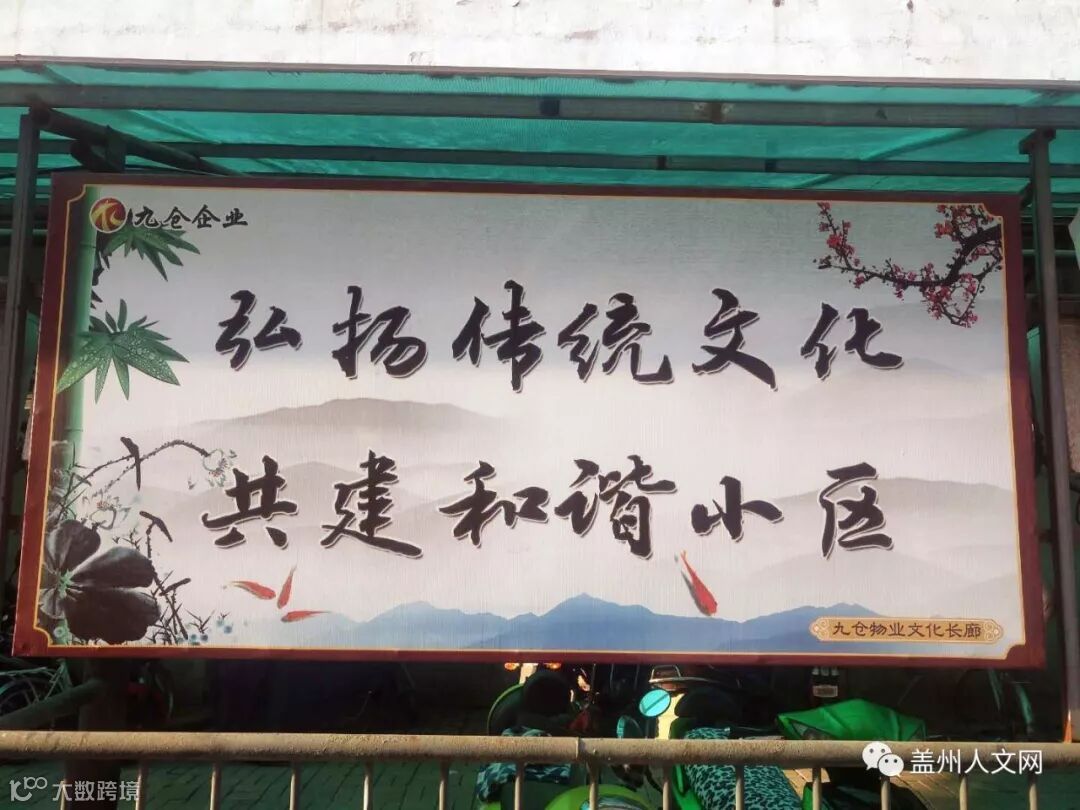 九仓企业
弘扬传统文化
共建和谐小区
九仓物业文化长廊
盖州人文网
大数跨境